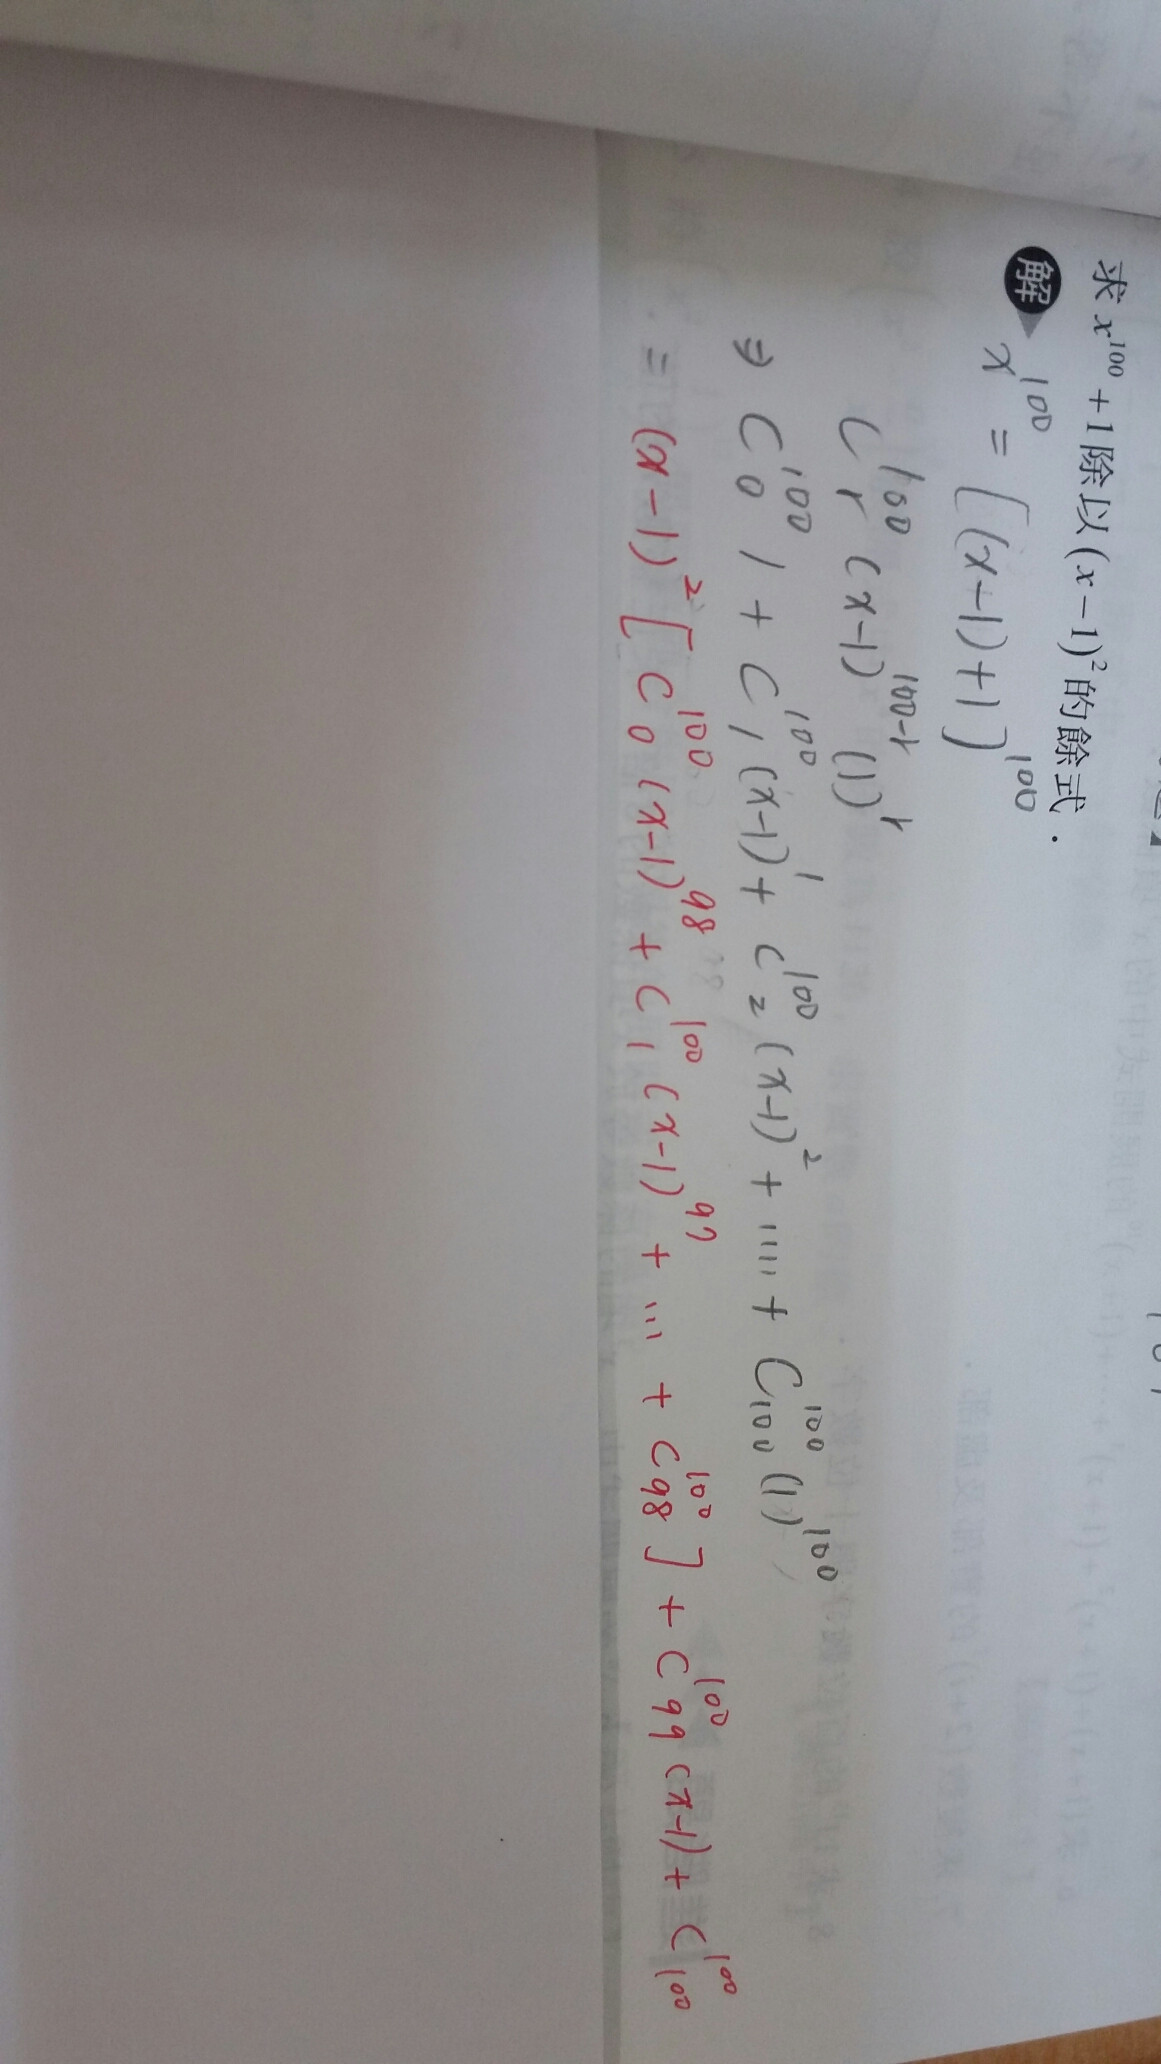 求 x¹⁰⁰ + 1 除以 (x − 1)² 的餘式.
解 x¹⁰⁰ = [(x−1)+1]¹⁰⁰
C¹⁰⁰ᵣ (x−1)¹⁰⁰⁻ʳ (1)ʳ
⇒ C¹⁰⁰₀ 1 + C¹⁰⁰₁ (x−1)¹ + C¹⁰⁰₂ (x−1)² + ⋯ + C¹⁰⁰₁₀₀ (1)¹⁰⁰
= (x−1)² [ C¹⁰⁰₀ (x−1)⁹⁸ + C¹⁰⁰₁ (x−1)⁹⁷ + ⋯ + C¹⁰⁰₉₈ ] + C¹⁰⁰₉₉ (x−1) + C¹⁰⁰₁₀₀